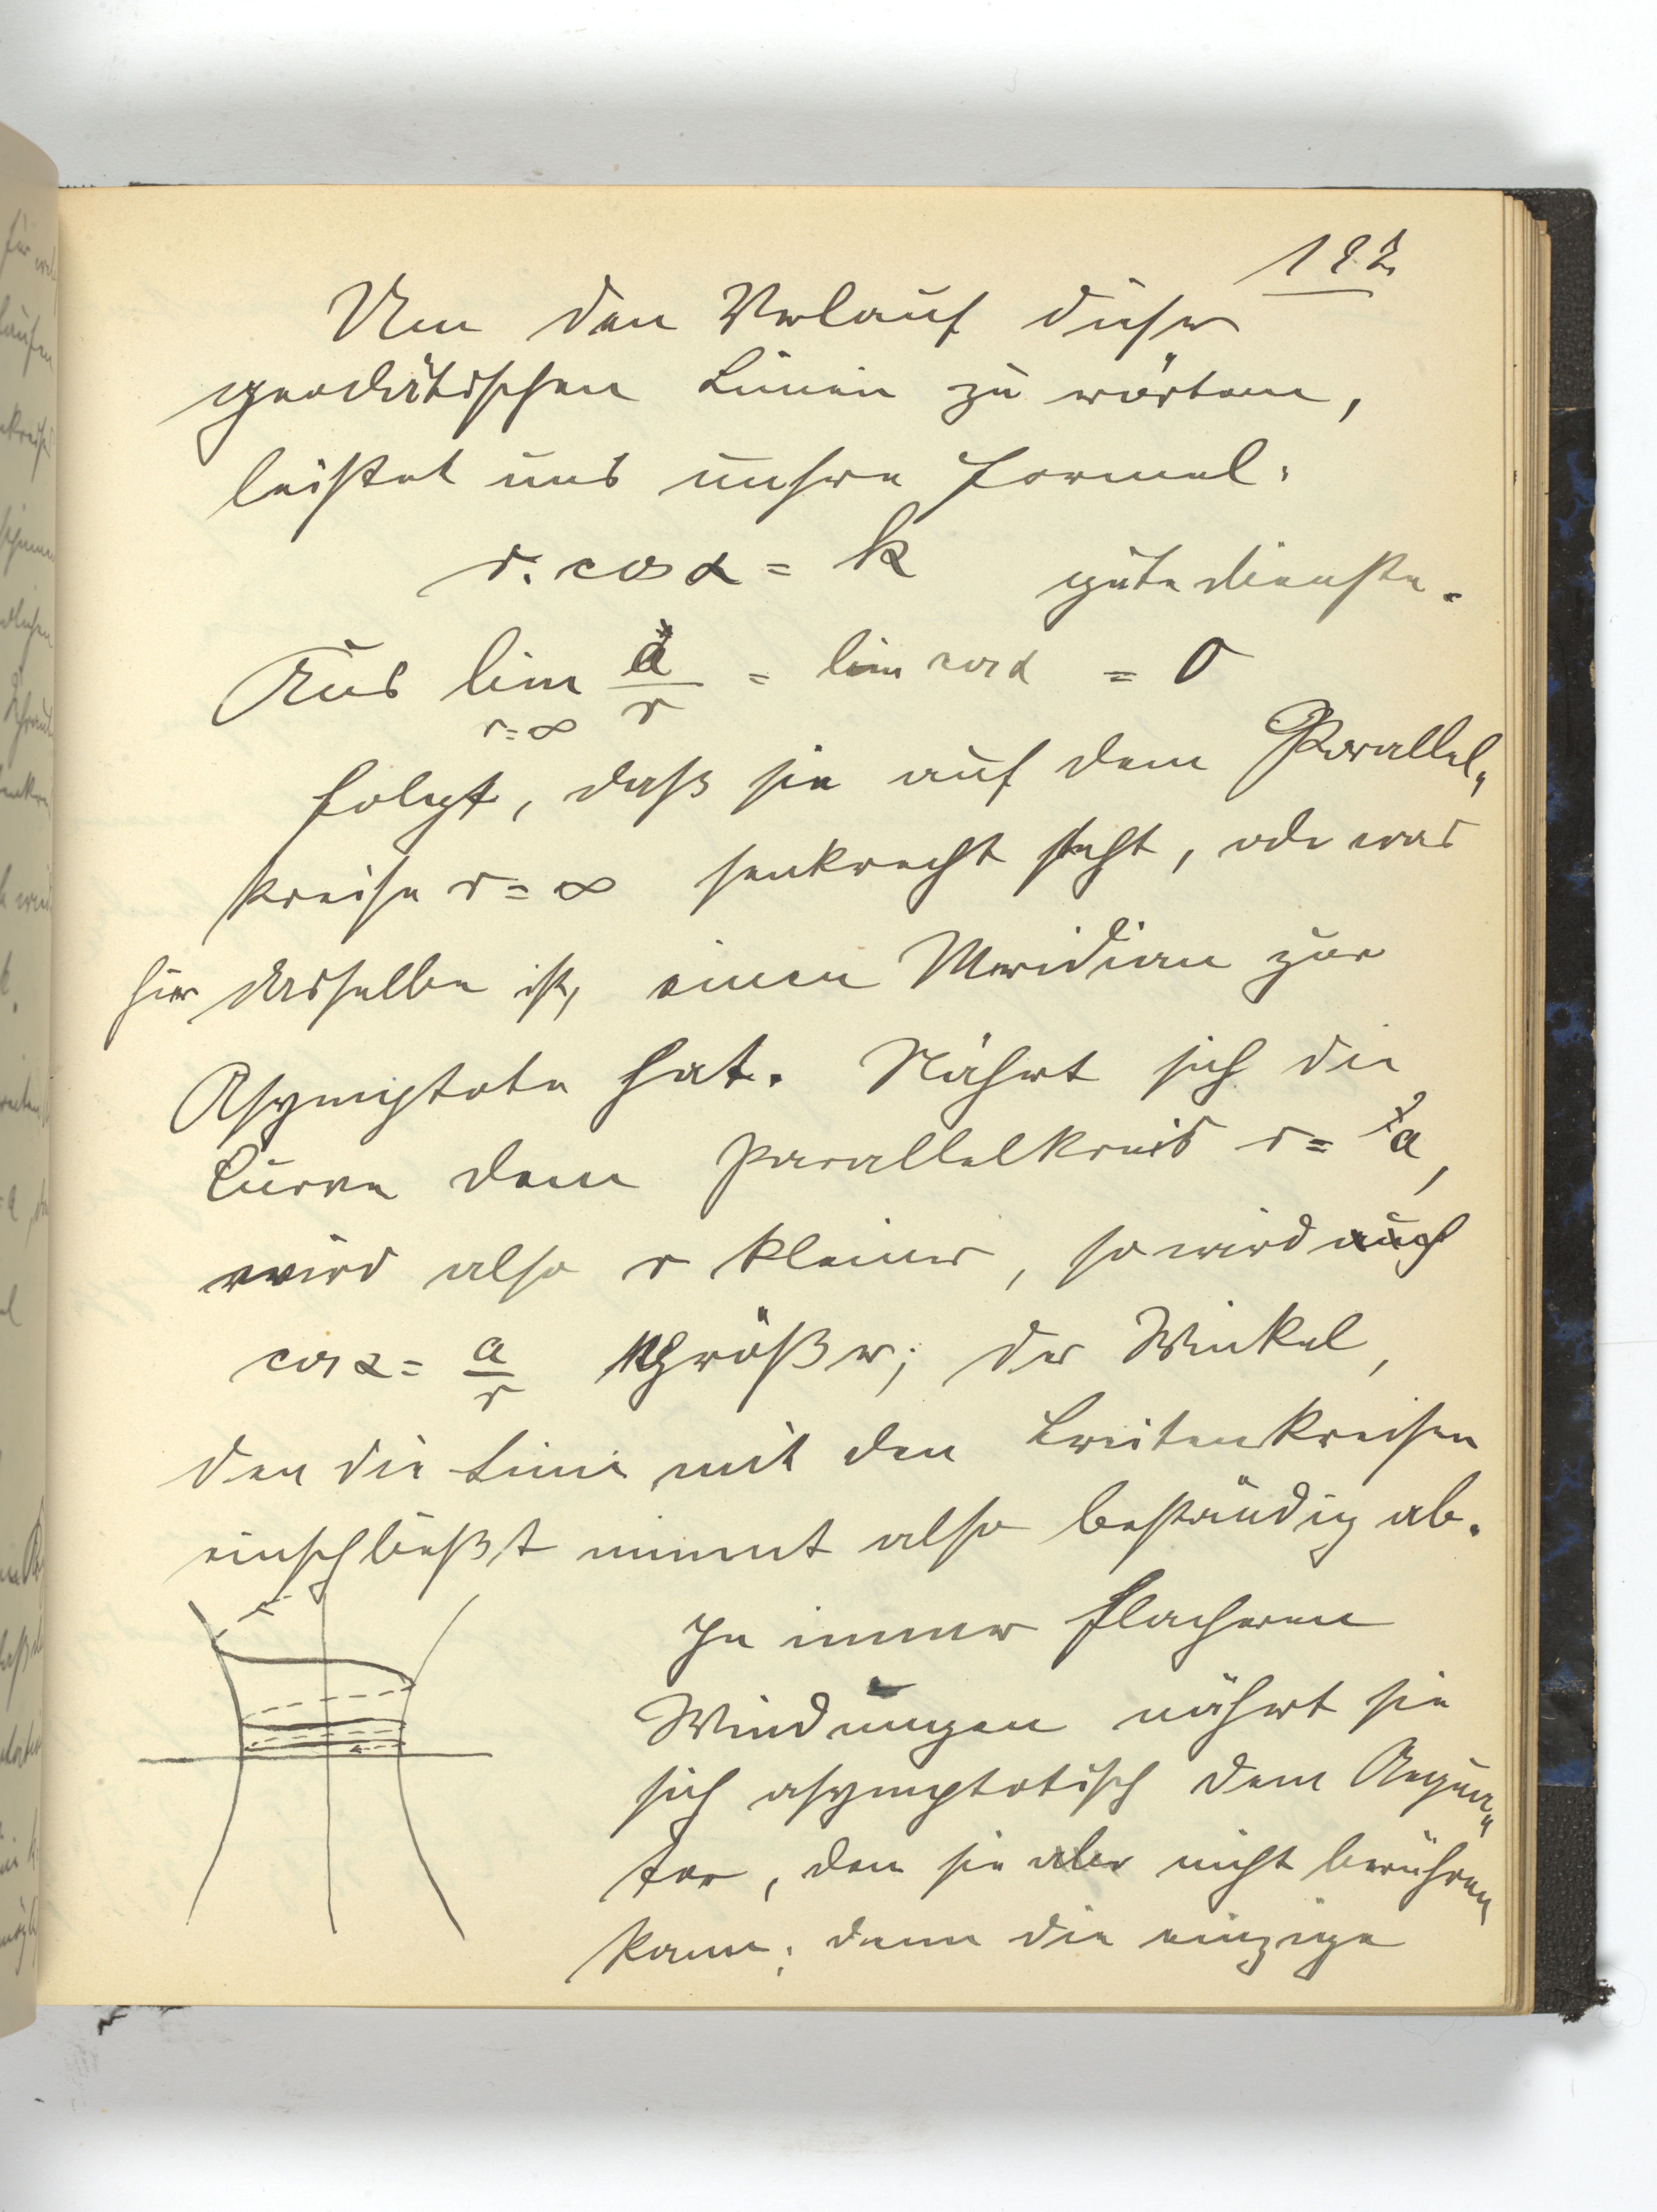 Um den Verlauf dieser
geodätischen Linien zu erörtern,
leistet uns unsere Formel:
r. cos α = k gute dienste.
Aus lim a/r = lim cos α = 0
r=∞
folgt, daß sie auf dem Parallel-
kreise r=∞ senkrecht steht, oder was
hier dasselbe ist, einen Meridian zur
Asymptote hat. Nähert sich die
Curve dem Parallelkreis r= a,
wird also r kleiner, so wird auch
cos α = a/r größer; der Winkel,
den die Linie mit den Breitenkreisen
einschließt nimmt also beständig ab.
In immer flacheren
Windungen nähert sie
sich asymptotisch dem Aequa-
tor, den sie aber nicht berühren
kann; denn die einzige